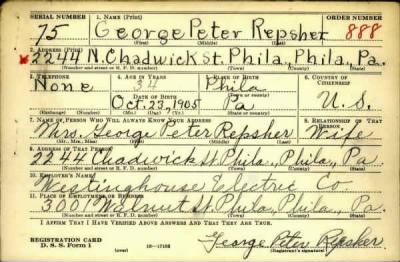 SERIAL NUMBER 1. NAME (Print) ORDER NUMBER
75 George Peter Repsher 888
(First) (Middle) (Last)
2. ADDRESS (Print)
x 2244 N. Chadwick St. Phila., Phila., Pa.
(Number and street or R. F. D. number) (Town) (County) (State)
3. TELEPHONE 4. AGE IN YEARS 5. PLACE OF BIRTH 6. COUNTRY OF CITIZENSHIP
None 34 Phila
DATE OF BIRTH
Oct. 23, 1905 Pa U.S.
(Exchange) (Number) (Mo.) (Day) (Yr.) (State or country)
7. NAME OF PERSON WHO WILL ALWAYS KNOW YOUR ADDRESS 8. RELATIONSHIP OF THAT PERSON
Mrs. George Peter Repsher Wife
(Mr., Mrs., Miss) (First) (Middle) (Last)
9. ADDRESS OF THAT PERSON
2244 Chadwick St. Phila., Phila., Pa
(Number and street or R. F. D. number) (Town) (County) (State)
10. EMPLOYER'S NAME
Westinghouse Electric Co.
11. PLACE OF EMPLOYMENT OR BUSINESS
3001 Walnut St. Phila., Phila., Pa.
(Number and street or R. F. D. number) (Town) (County) (State)
I AFFIRM THAT I HAVE VERIFIED ABOVE ANSWERS AND THAT THEY ARE TRUE.
REGISTRATION CARD
D. S. S. Form 1 (over) 16—17105 George Peter Repsher
(Registrant's signature)